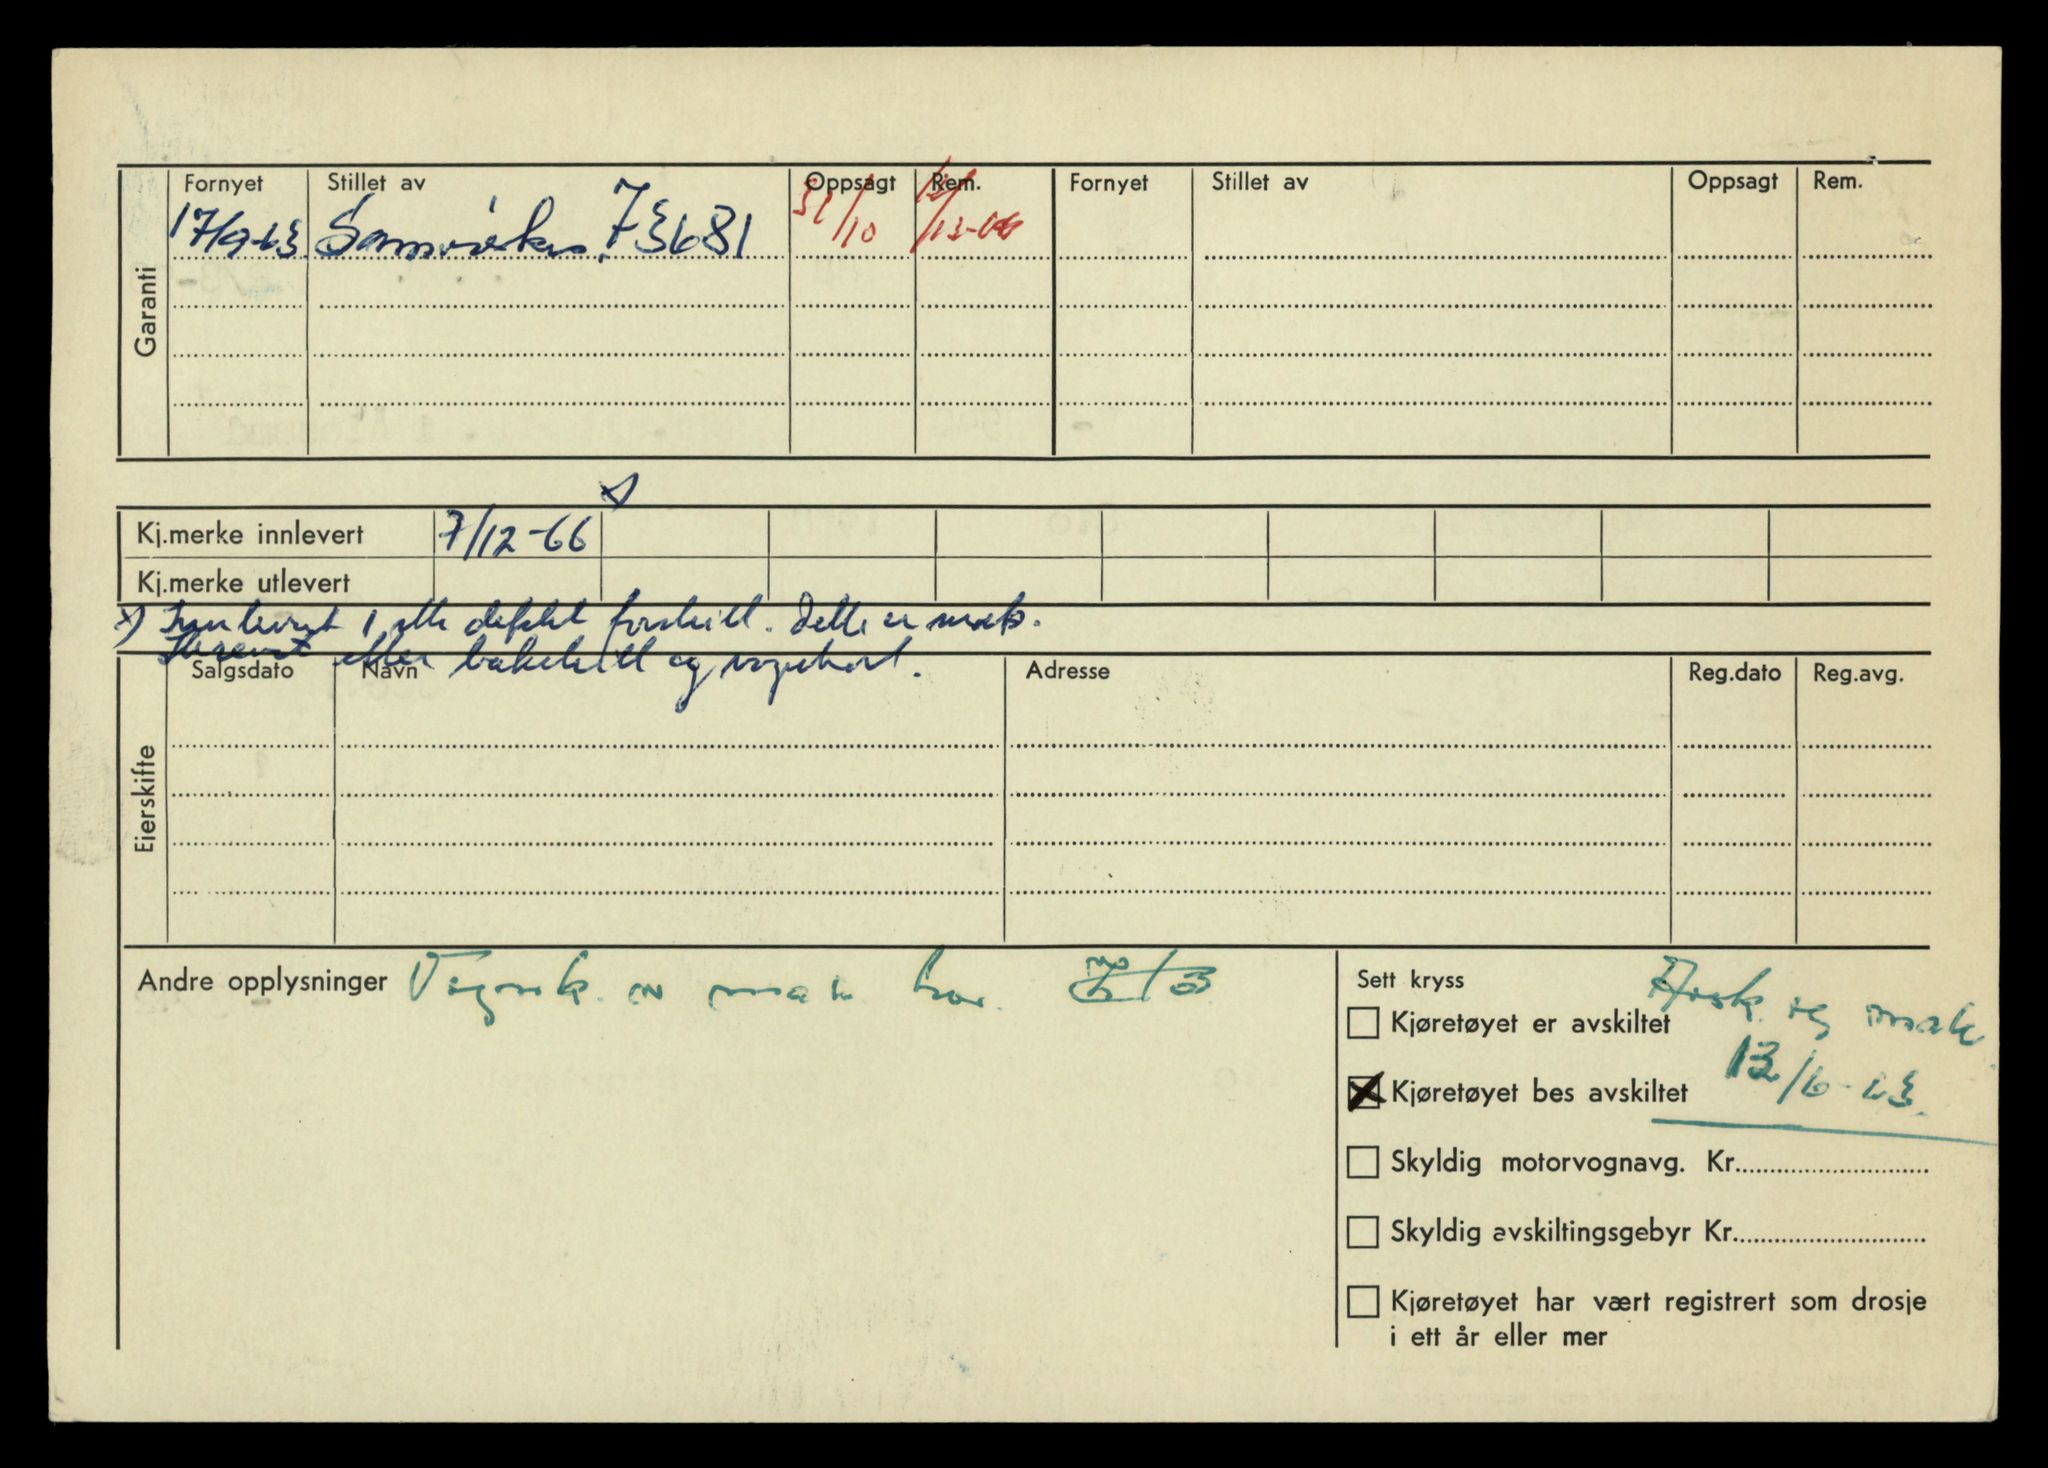 Garanti
Fornyet Stillet av Oppsagt Rem. Fornyet Stillet av Oppsagt Rem.
17/9-63 Samvirke 73681 31/10 13-66
Kj.merke innlevert 7/12-66 x)
Kj.merke utlevert
x) Innlevert 1 stk defekt forskilt. Dette er mak.
etter bakskilt og vognkort.
Eierskifte
Salgsdato Navn Adresse Reg.dato Reg.avg.
Andre opplysninger Vognk. er mak
Sett kryss
Kjøretøyet er avskiltet og mak
Kjøretøyet bes avskiltet 13/6-63.
Skyldig motorvognavg. Kr.
Skyldig avskiltingsgebyr Kr.
Kjøretøyet har vært registrert som drosje
i ett år eller mer